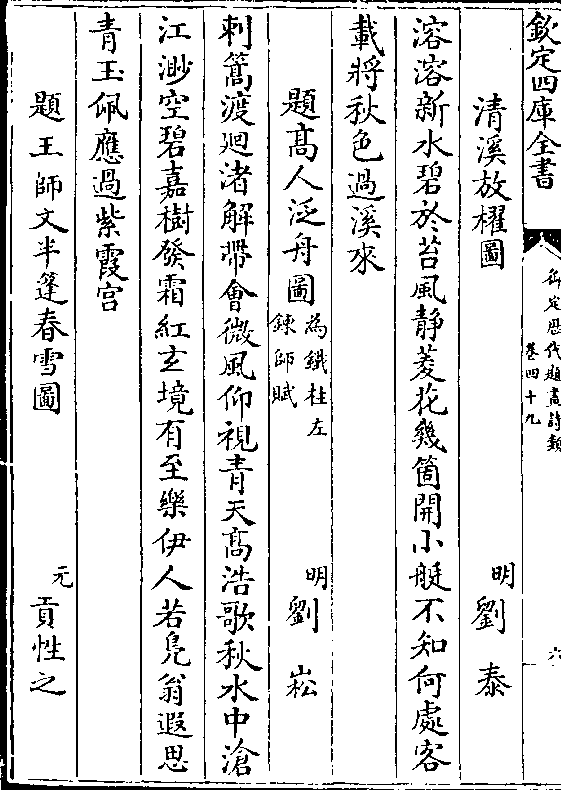 欽定四庫全書
御定歷代題畫詩類
卷四十九
六
清溪放櫂圖
明劉泰
溶溶新水碧於苔風静菱花幾箇開小艇不知何處客
載將秋色過溪來
題高人泛舟圖
為鐵柱左
鍊師賦
明劉崧
刺篙渡廻渚解帶會微風仰視青天高浩歌秋水中滄
江渺空碧嘉樹發霜紅玄境有至樂伊人若凫翁遐思
青玉佩應過紫霞宫
題王師文半篷春雪圖
元貢性之